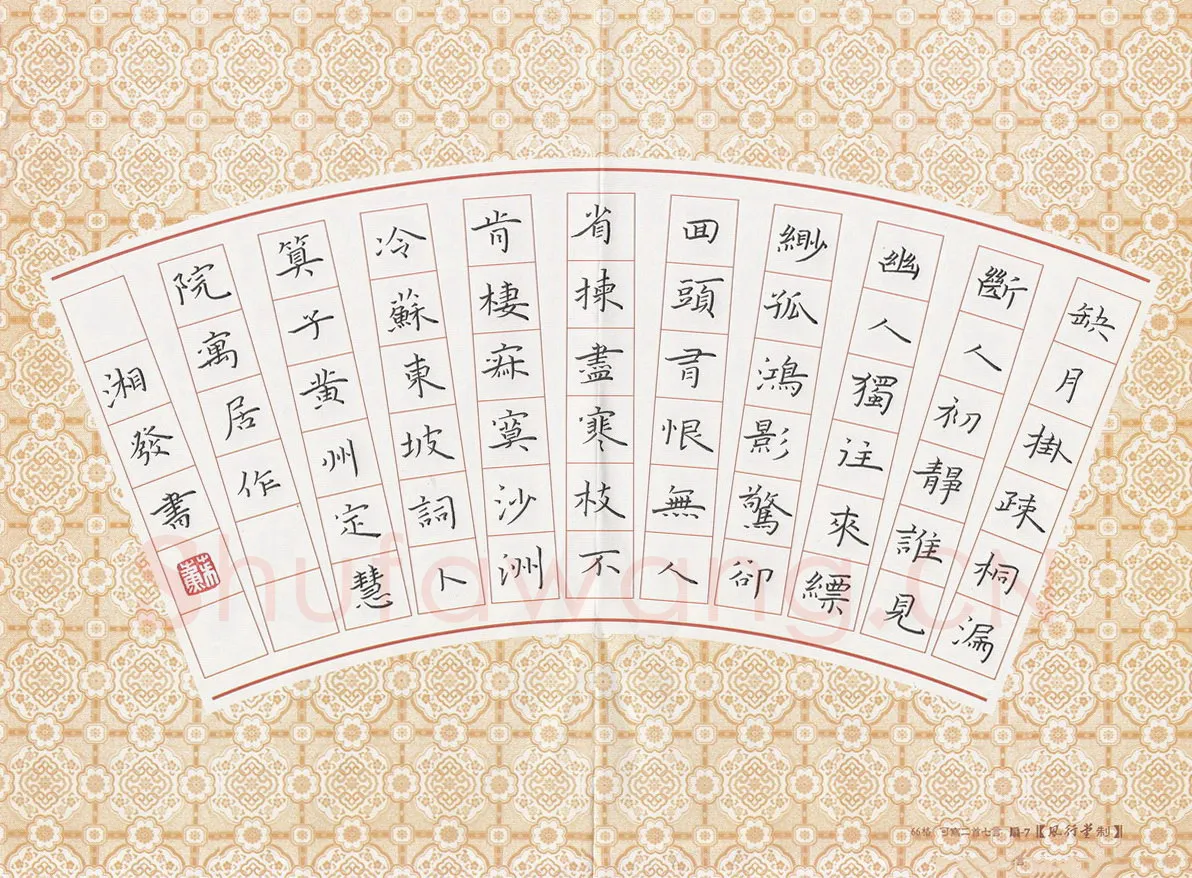 缺月掛疎桐漏
斷人初靜誰見
幽人獨往來縹
緲孤鴻影驚卻
回頭有恨無人
省揀盡寒枝不
肯棲寂寞沙洲
冷蘇東坡詞卜
算子黃州定慧
院寓居作
湘發書
Shufawang.CN
66格 可寫二首七言 扇-7【風行堂制】